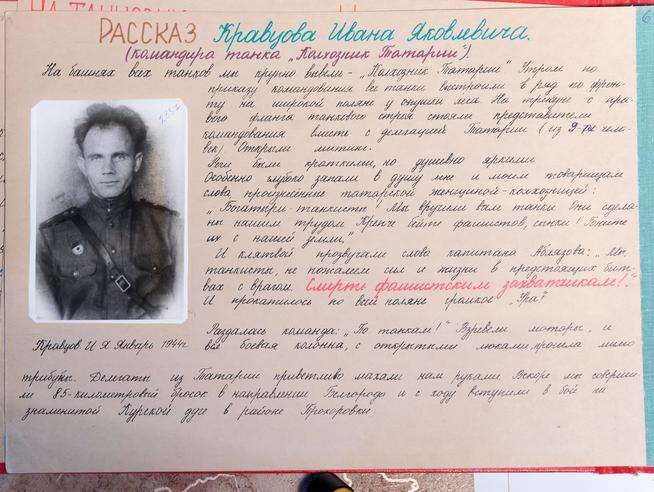 РАССКАЗ Кравцова Ивана Яковлевича.
(командира танка „Колхозник Татарии").
На башнях всех танков мы крупно вывели – „Колхозник Татарии" Утром по
приказу командования все танки выстроили в ряд по фрон-
ту на широкой поляне у опушки леса. На трибуне с пра-
вого фланга танкового строя стояли представители
командования вместе с делегацией Татарии (из 9-ти чело-
век) Открыли митинг.
Речи были краткими, но душевно яркими.
Особенно глубоко запали в душу мне и моим товарищам
слова произнесённые татарской женщиной-колхозницей:
„Богатыри-танкисты! Мы вручили вам танки. Они сдела-
ны нашим трудом Крепче бейте фашистов, сынки! Гоните
их с нашей земли."
И клятвой прозвучали слова капитана Аблязова: „Мы,
танкисты, не пожалеем сил и жизни в предстоящих бит-
вах с врагам. Смерть фашистским захватчикам!."
И прокатилось по всей поляне громкое „Ура"
Раздалась команда: „По танкам!" Взревели моторы, и
вся боевая колонна, с открытыми люками, прошла мимо
Кравцов. И Я Январь 1944г
трибуны. Делегаты из Татарии приветливо махали нам руками. Вскоре мы соверши-
ли 85-километровый бросок в направлении Белгорода и с ходу вступили в бой на
знаменитой Курской дуге в районе Прохоровки